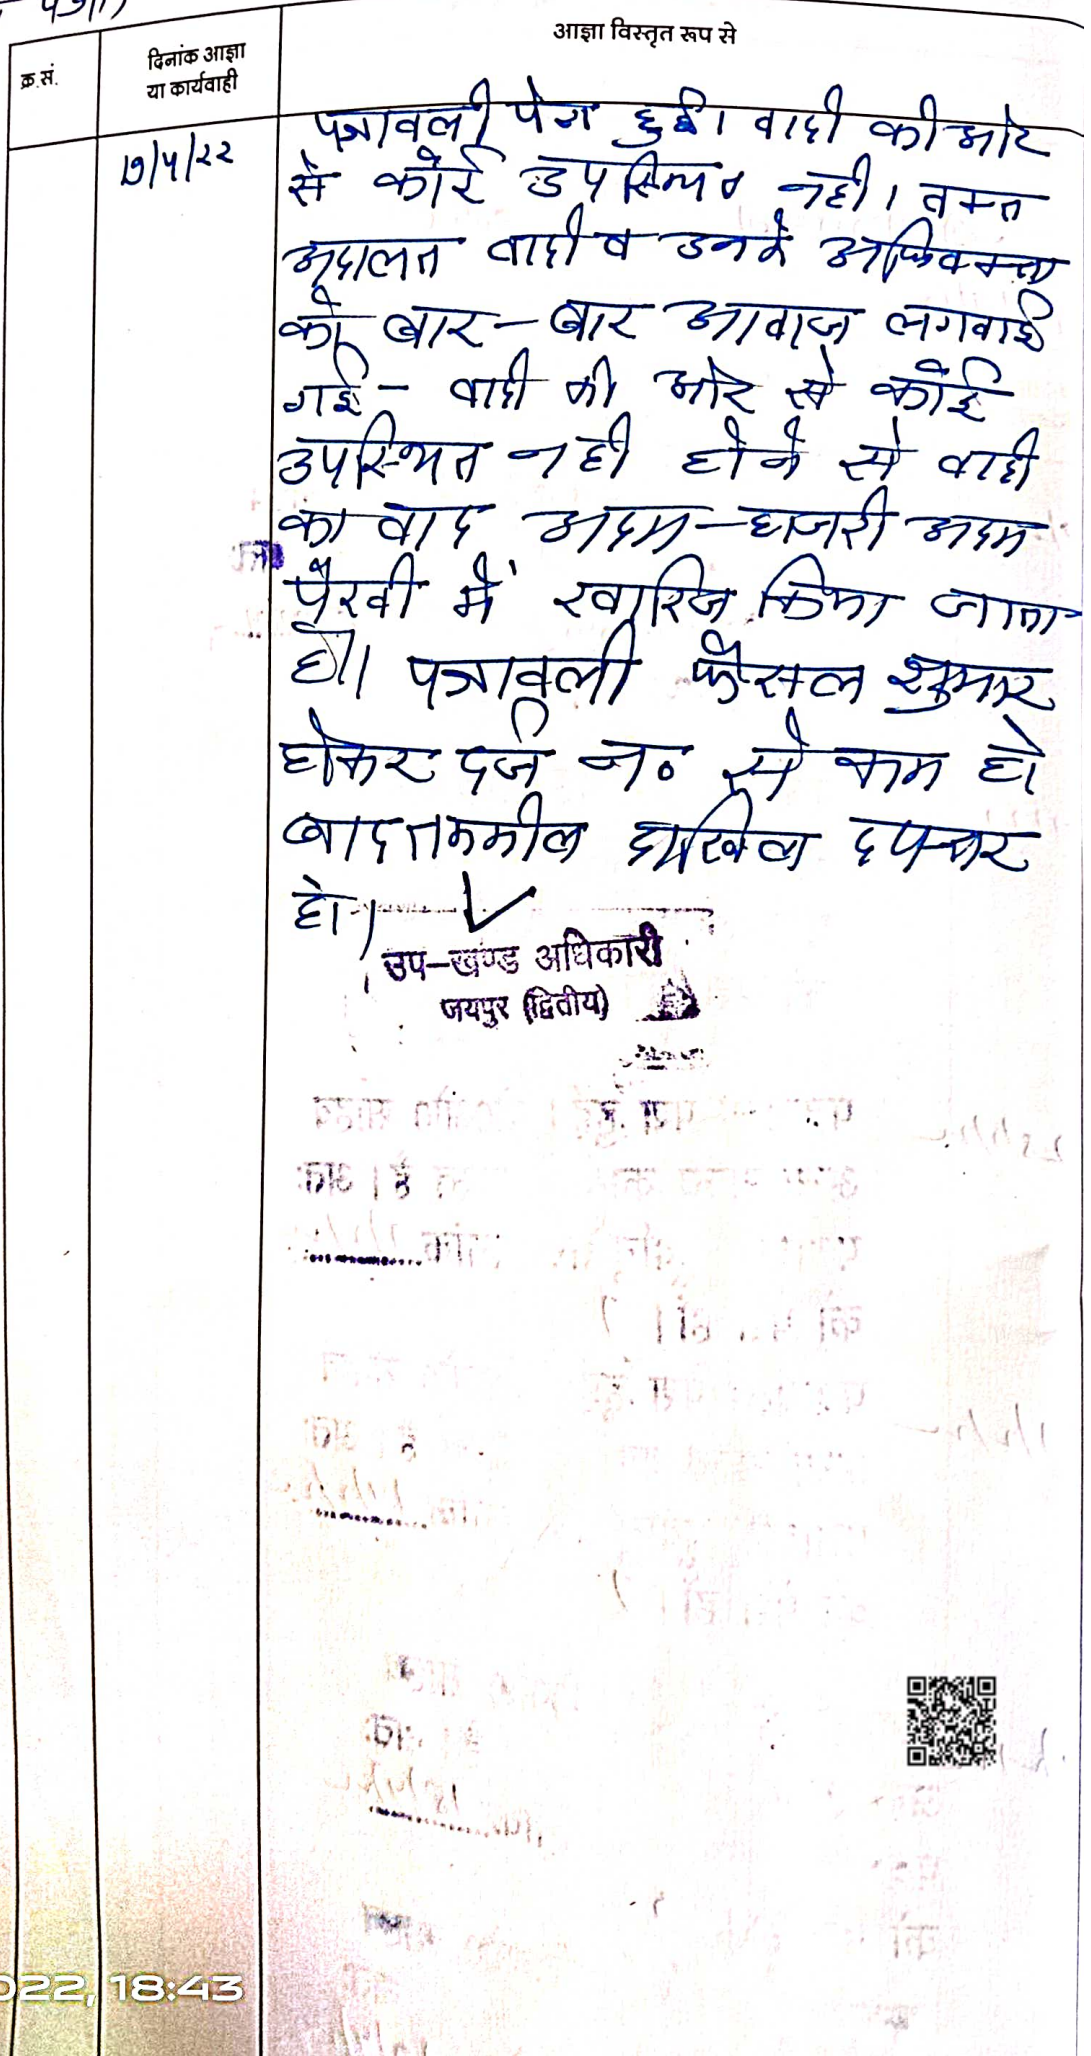 आज्ञा विस्तृत रूप से
क्र.सं.
दिनांक आज्ञा
या कार्यवाही
पत्रावली पेश हुई। वादी की ओर
से कोई उपस्थित नही। वक्त
अदालत वादी व उनके अधिवक्ता
को बार-बार आवाज लगवाई
गई - वादी की ओर से कोई
उपस्थित नही होने से वादी
का वाद अदम-हाजरी अदम
पैरवी में खारिज किया जाता
है। पत्रावली फैसल शुमार
होकर दर्ज न० से कम हो
बाद तकमील दाखिल दफ्तर
हो।
उप-खण्ड अधिकारी
जयपुर (द्वितीय)
022, 18:43